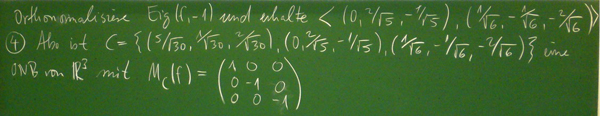 Orthonormalisiere Eig(f,-1) und erhalte < (0, 2/√5, -1/√5), (1/√6, -1/√6, -2/√6) >
④ Also ist C = { (5/√30, 1/√30, 2/√30), (0, 2/√5, -1/√5), (1/√6, -1/√6, -2/√6) } eine
ONB von ℝ³ mit M_C(f) = ( 1 0 0
0 -1 0
0 0 -1 )